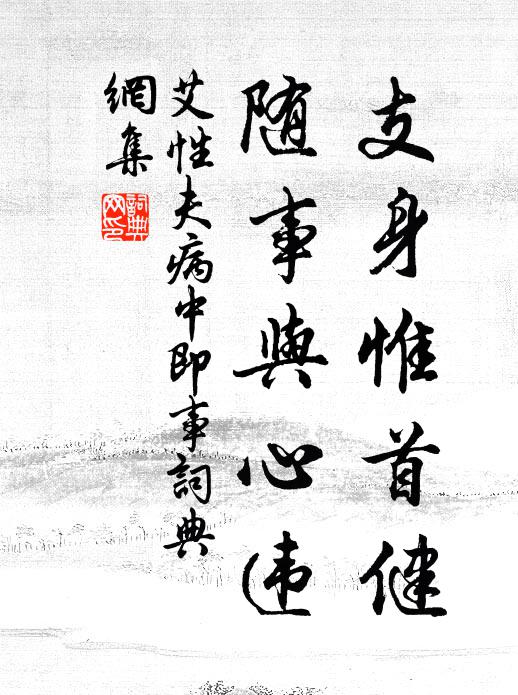 支身惟首健
随事與心违
艾性夫病中即事詞典
網集
詞典
网印